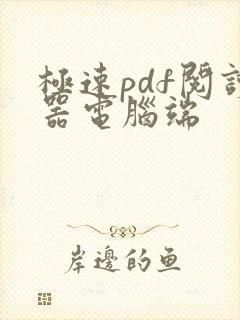 極速pdf閱讀
器電腦端
岸邊的鱼